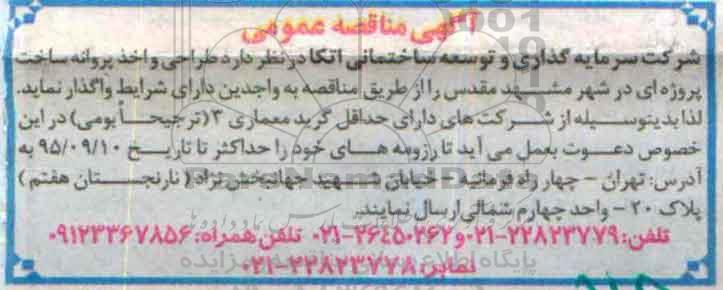 آگهی مناقصه عمومی
شرکت سرمایه گذاری و توسعه ساختمانی اتکا در نظر دارد طراحی و اخذ پروانه ساخت
پروژه ای در شهر مشهد مقدس را از طریق مناقصه به واجدین دارای شرایط واگذار نماید.
لذا بدینوسیله از شرکت های دارای حداقل گرید معماری ۳ (ترجیحاً بومی) در این
خصوص دعوت بعمل می آید تا رزومه های خود را حداکثر تا تاریخ ۹۵/۰۹/۱۰ به
آدرس: تهران - چهار راه فرمانیه - خیابان شهید جهانبخش نژاد (نارنجستان هفتم)
پلاک ۲۰ - واحد چهارم شمالی ارسال نمایند.
تلفن: ۲۲۸۲۳۷۷۹-۰۲۱ و ۲۶۴۵۰۲۶۲-۰۲۱ تلفن همراه: ۰۹۱۲۳۳۶۷۸۵۶
نمابر: ۲۲۸۲۳۷۷۸-۰۲۱